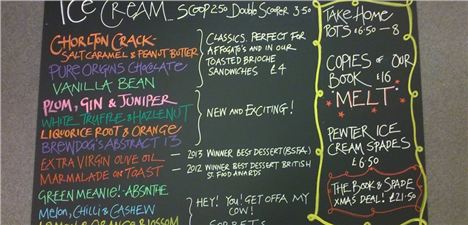 ICE CREAM SCOOP 2.50 DOUBLE SCOOPER 3.50
CHORLTON CRACK-
SALT CARAMEL & PEANUT BUTTER
PURE ORIGINS CHOCOLATE
VANILLA BEAN
CLASSICS. PERFECT FOR
AFFOGATO'S AND IN OUR
TOASTED BRIOCHE
SANDWICHES £4
PLUM, GIN & JUNIPER
WHITE TRUFFLE & HAZLENUT
LIQUORICE ROOT & ORANGE
BREWDOG'S ABSTRACT 13
NEW AND EXCITING!
EXTRA VIRGIN OLIVE OIL - 2013 WINNER BEST DESSERT (BSFA)
MARMALADE ON TOAST - 2012 WINNER BEST DESSERT BRITISH
ST. FOOD AWARDS
GREEN MEANIE!-ABSINTHE
MELON, CHILLI & CASHEW
LEMON & ORANGE BLOSSOM
HEY! YOU! GET OFFA MY
COW!
SORBETS
TAKE HOME
POTS £6.50 - 8
COPIES OF OUR
BOOK £16
"MELT"
PEWTER ICE
CREAM SPADES
£6.50
THE BOOK & SPADE
XMAS DEAL! £21.50